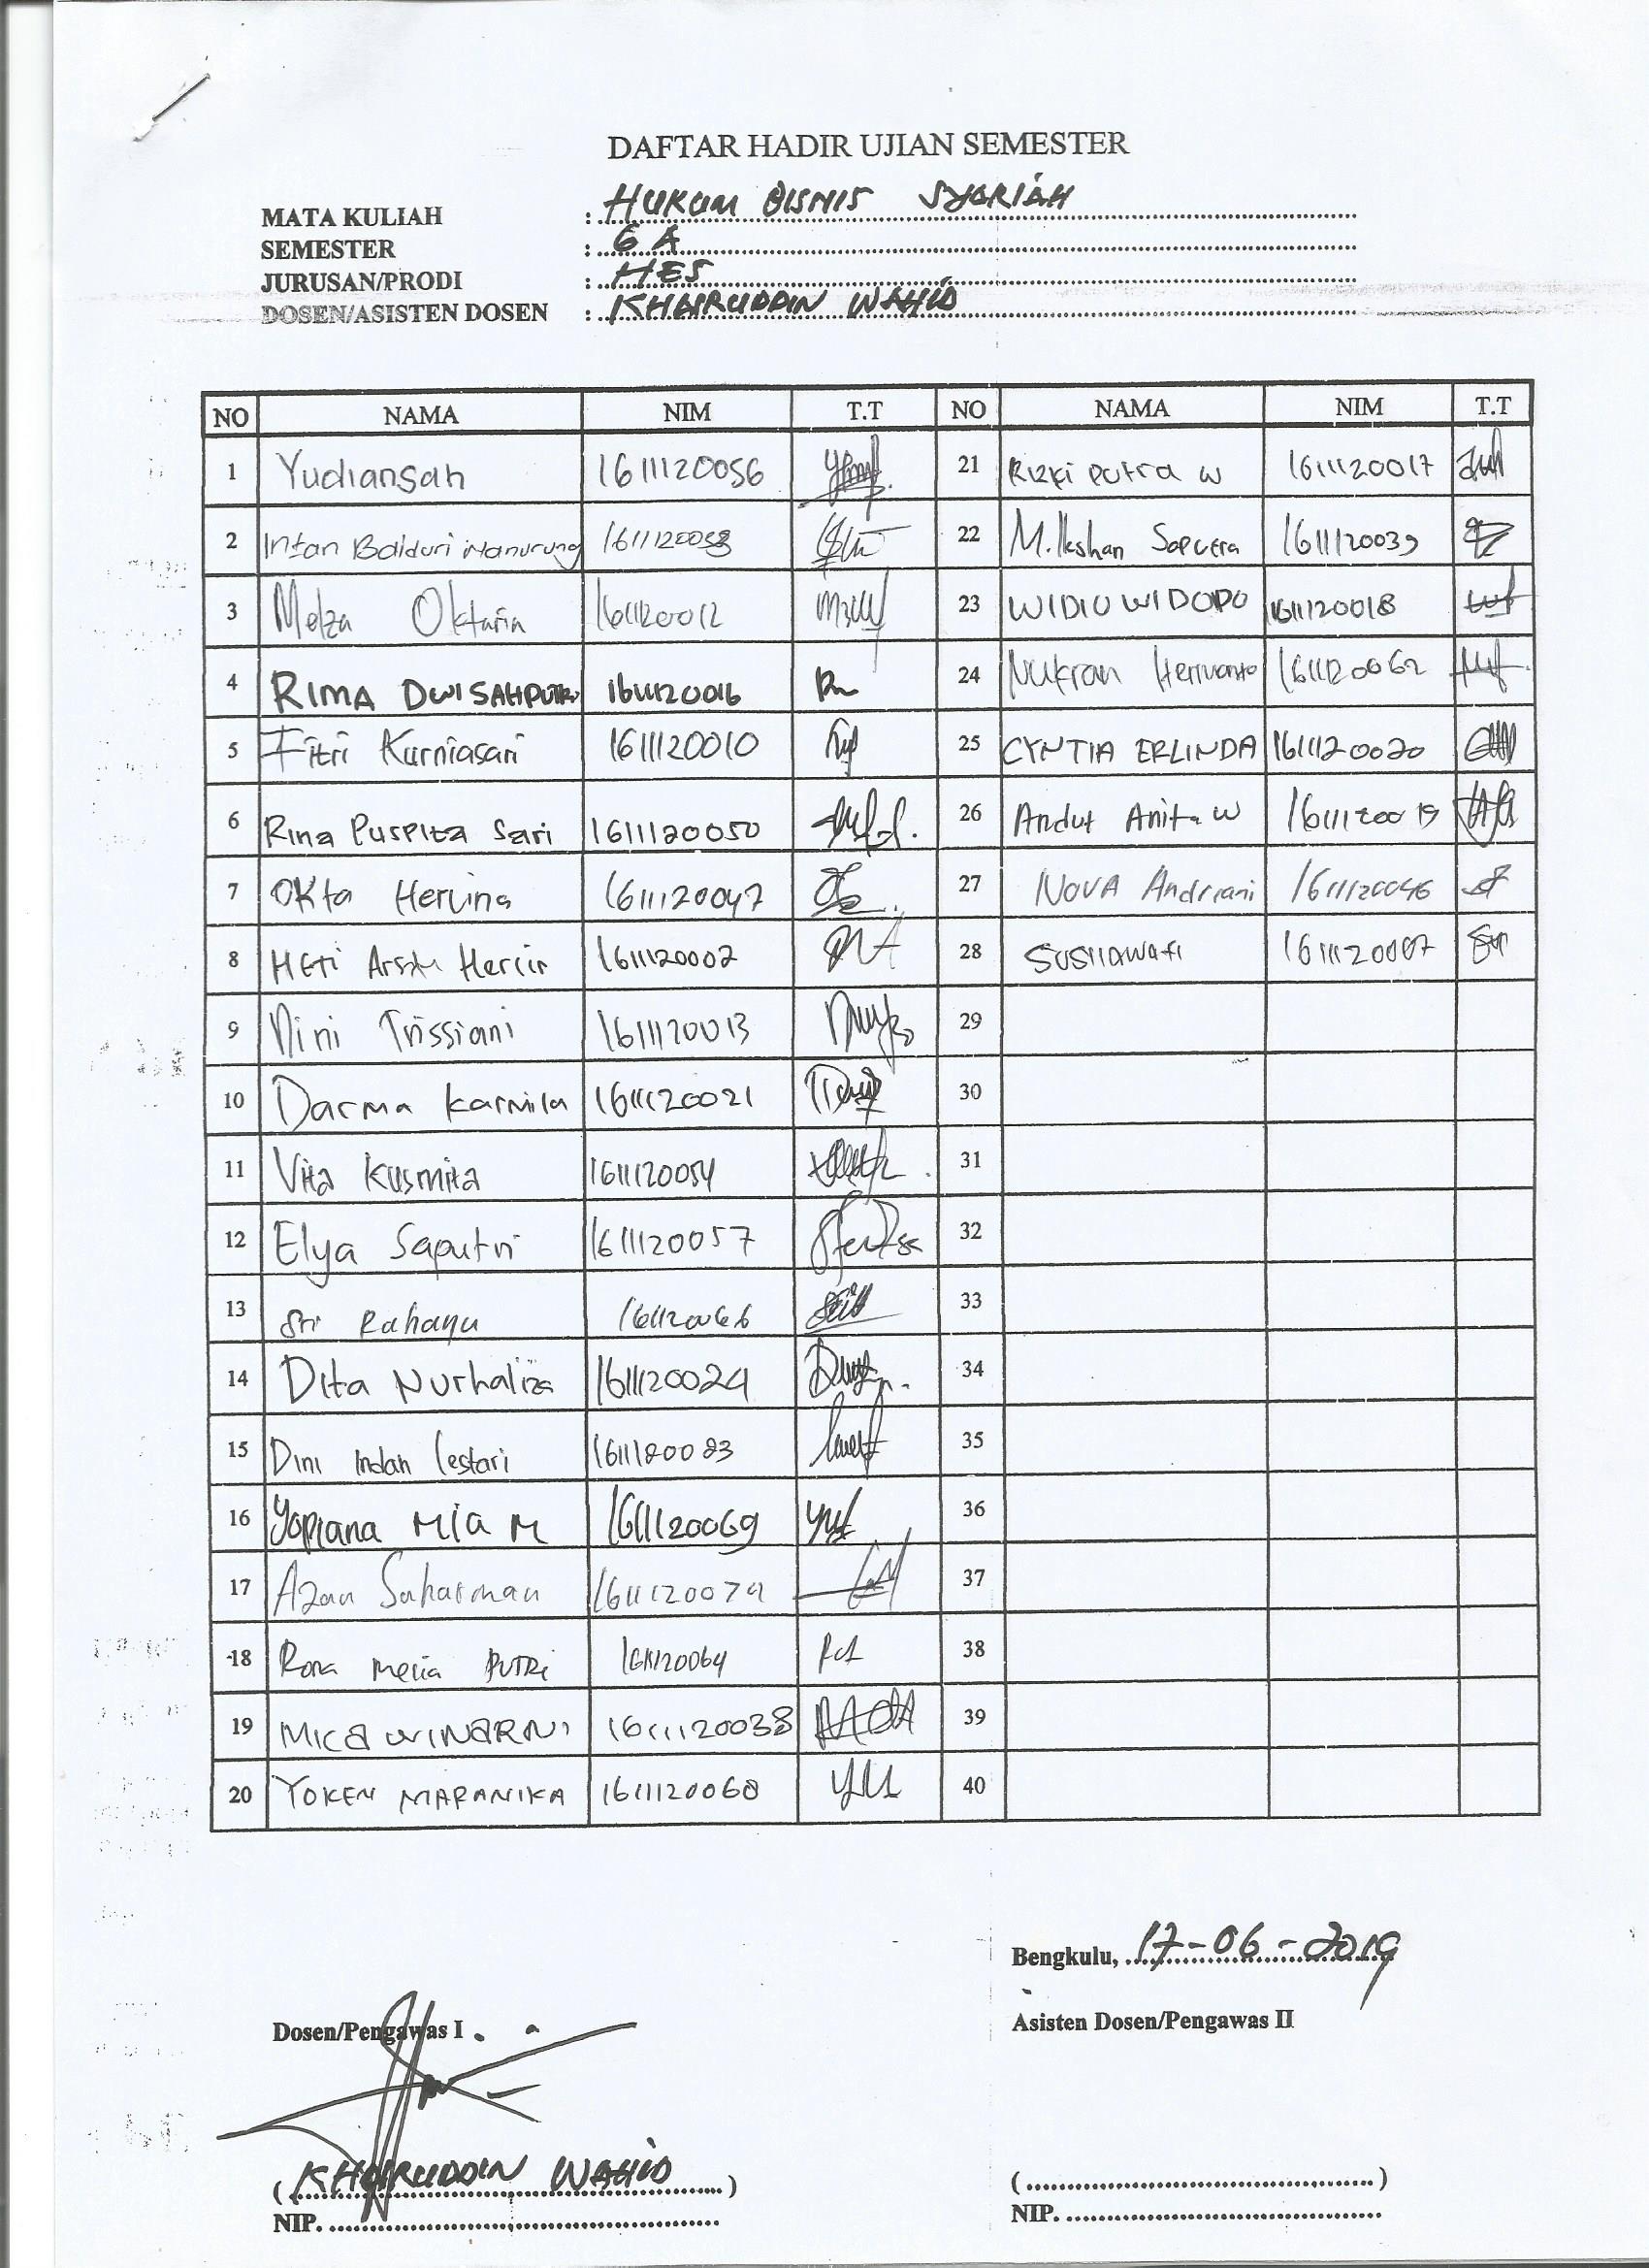 DAFTAR HADIR UJIAN SEMESTER
MATA KULIAH : HUKUM BISNIS SYARIAH
SEMESTER : 6 A
JURUSAN/PRODI : HES
DOSEN/ASISTEN DOSEN : KHAIRUDDIN WAHID
NO NAMA NIM T.T NO NAMA NIM T.T
1 Yudiansah 1611120056 21 Rizki Putra W 1611120017
2 Intan Baiduri Manurung 22 M. Ikshan Saputra 1611120039
3 Melza Oktaria 1611120012 23 WIDIO WIDODO 1611120018
4 RIMA DWI SAHPUTRI 1611120016 24 Nukran Herwanto 1611120062
5 Fitri Kurniasari 1611120010 25 CYNTIA ERLINDA 1611120020
6 Rina Puspita Sari 1611120050 26 Andut Anita W 1611120019
7 Okta Herlina 1611120047 27 NOVA Andriani 1611120046
8 Heti 1611120002 28 Susilawati
9 Nini Trissiani 1611120013 29
10 Darma Karmila 1611120021 30
11 Vita Kusmita 1611120054 31
12 Elya Saputri 1611120057 32
13 Sri Rahayu 1611120066 33
14 Dita Nurhaliza 1611120024 34
15 Dini Indah lestari 1611120023 35
16 Yopiana Mia M 1611120069 36
17 Azan Suharman 1611120074 37
18 Rona Melia PUTRi 1611120064 38
19 MICA WINARNI 1611120038 39
20 YOKEN MARANIKA 1611120060 40
Bengkulu, 17-06-2019
Dosen/Pengawas I Asisten Dosen/Pengawas II
( KHAIRUDDIN WAHID ) ( )
NIP. NIP.